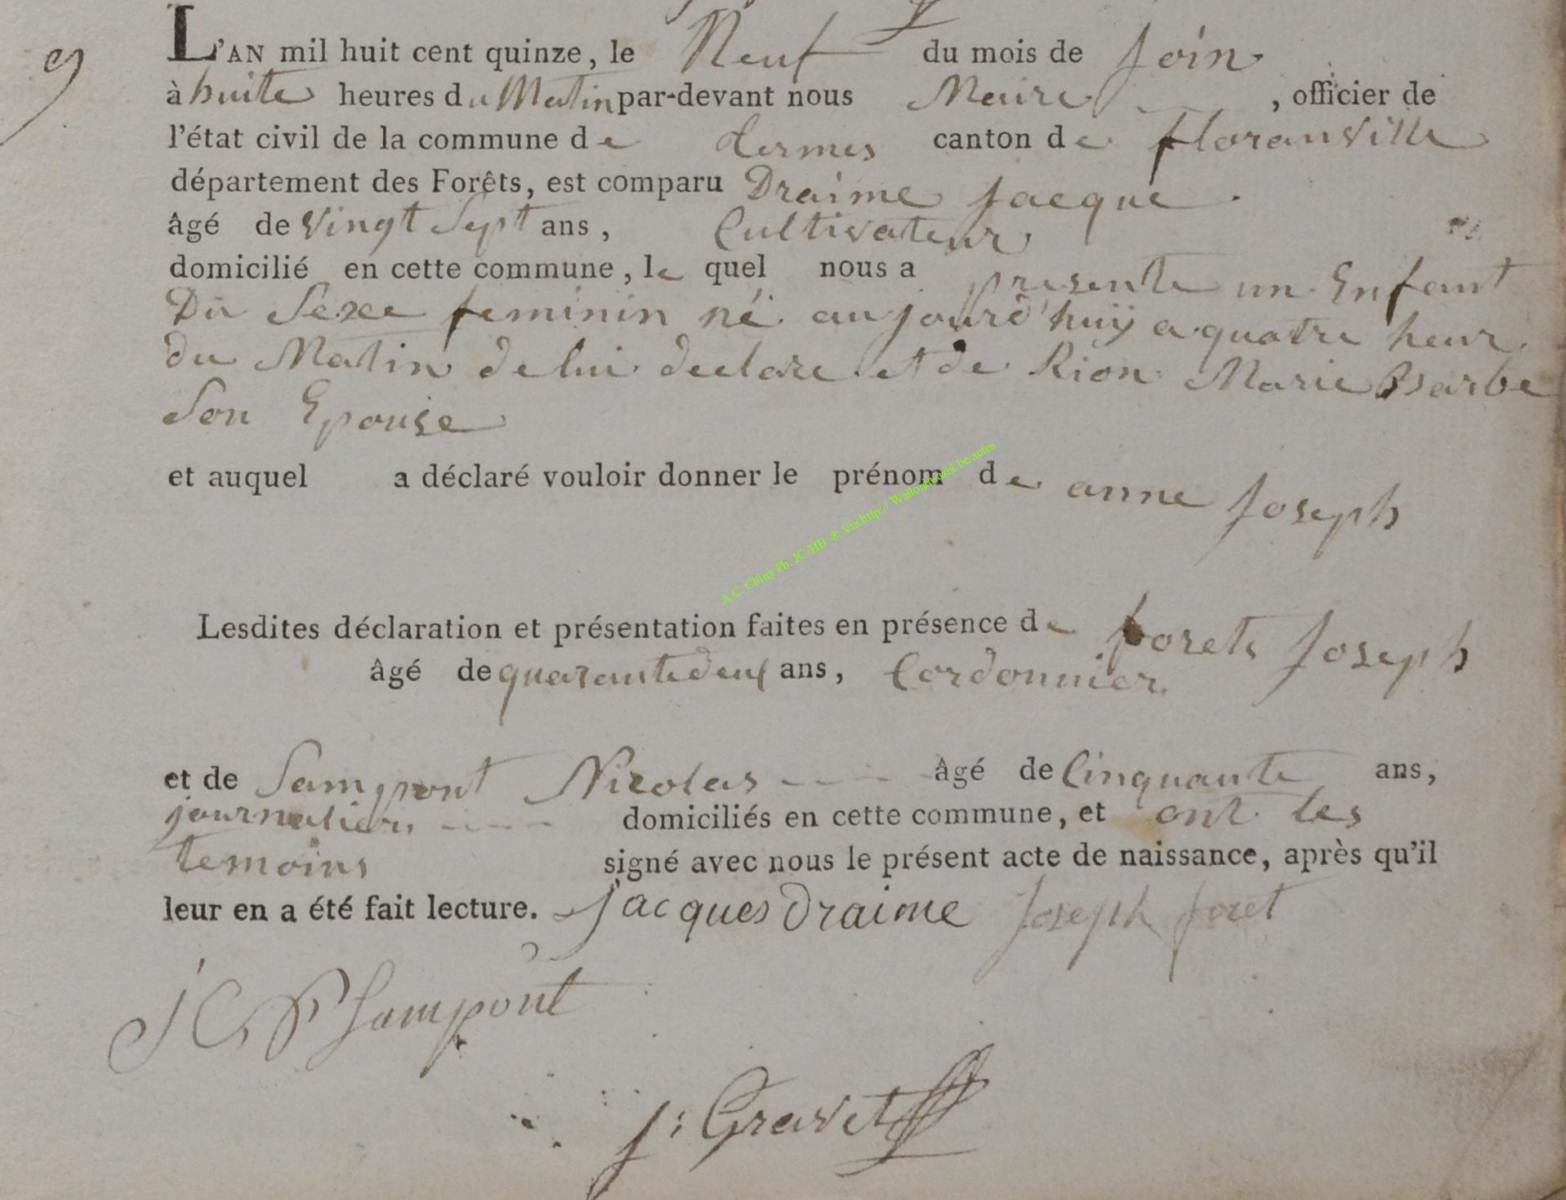 9
L'AN mil huit cent quinze, le Neuf du mois de Join
à huite heures du Matin par-devant nous Maire, officier de
l'état civil de la commune de termes canton de floranville
département des Forêts, est comparu Draime jacque
âgé de vingt Sept ans, Cultivateur
domicilié en cette commune, le quel nous a presente un Enfant
Du Sexe feminin né aujourd'huÿ a quatre heur
du Matin de lui declare et de Rion Marie Barbe
Son Epouse
et auquel a déclaré vouloir donner le prénom de anne Joseph
Lesdites déclaration et présentation faites en présence de forets Joseph
âgé de quarante deux ans, Cordonnier
et de Sampont Nicolas âgé de Cinquante ans,
journalier domiciliés en cette commune, et ont les
temoins signé avec nous le présent acte de naissance, après qu'il
leur en a été fait lecture. jacques draime Joseph foret
Sampont
j: Gravet